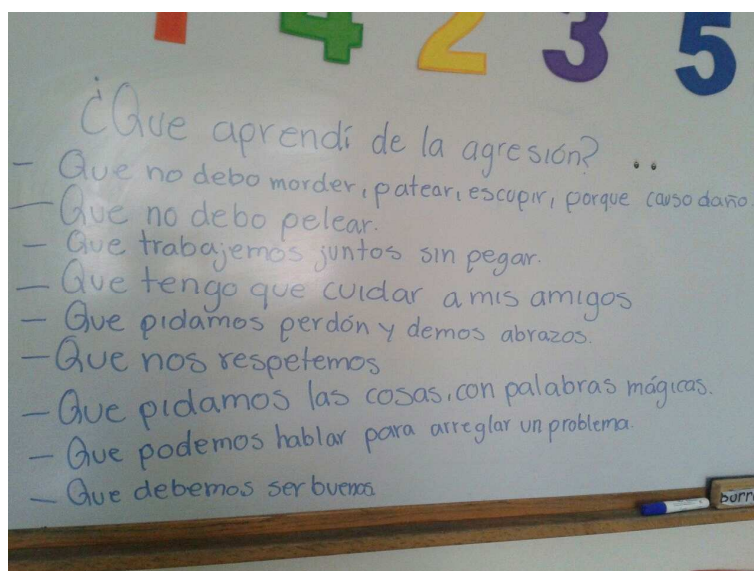 1 4 2 3 5
¿Que aprendí de la agresión? ..
- Que no debo morder, patear, escupir, porque causo daño.
- Que no debo pelear.
- Que trabajemos juntos sin pegar.
- Que tengo que cuidar a mis amigos
- Que pidamos perdón y demos abrazos.
- Que nos respetemos
- Que pidamos las cosas, con palabras mágicas.
- Que podemos hablar para arreglar un problema.
- Que debemos ser buenos